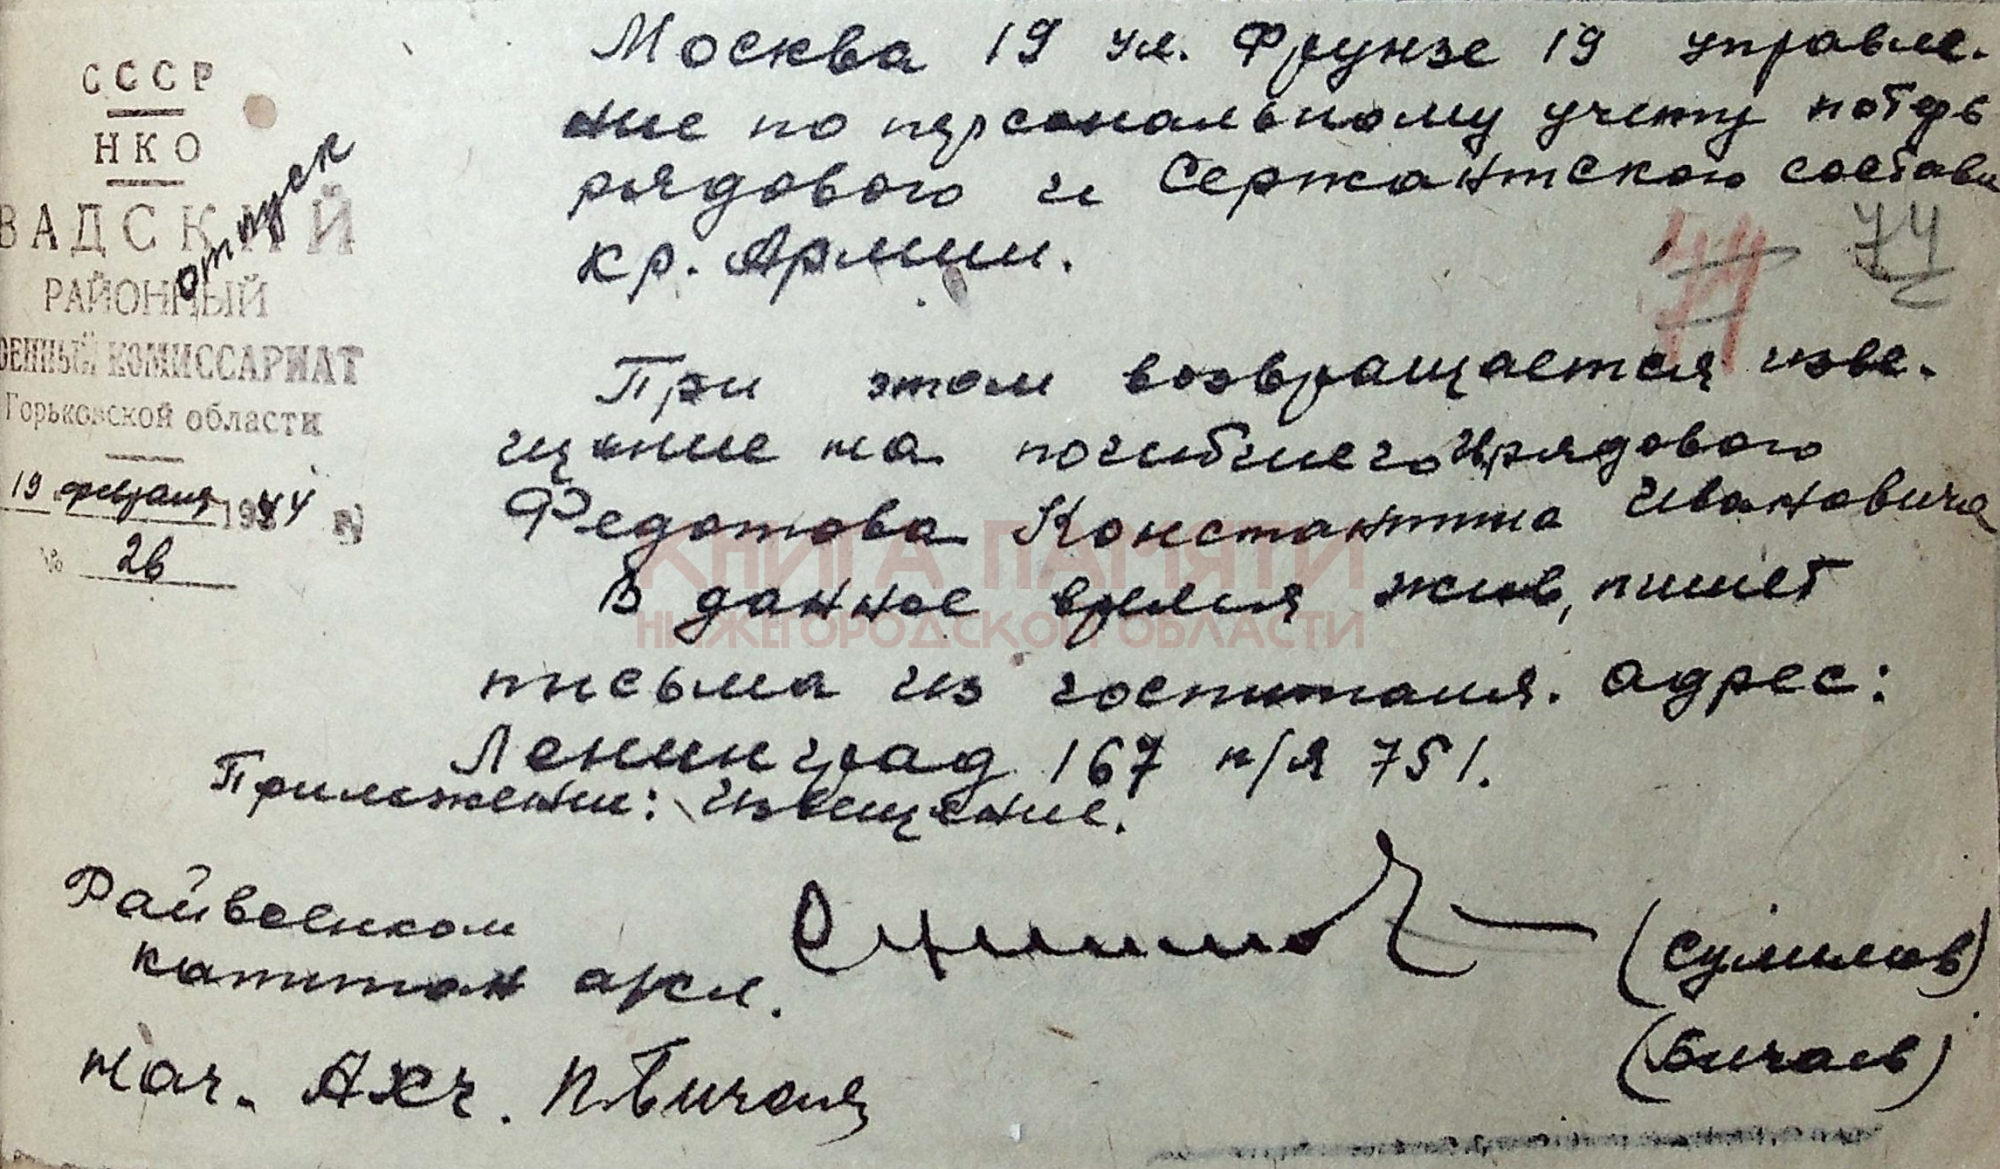 СССР
НКО
ВАДСКИЙ
РАЙОННЫЙ
ОЕННЫЙ КОМИССАРИАТ
Горьковской области
19 февраля 1944
№ 26
отпуск
Москва 19 ул. Фрунзе 19 управле-
ние по персональному учету потерь
рядового и Сержантского состава
кр. Армии.
74
При этом возвращается изве-
щение на погибшего рядового
Федотова Константина Ивановича
В данное время жив, пишет
письма из госпиталя. адрес:
Ленинград 167 п/я 751.
Приложение: извещение.
Райвоенком
капитан
(Сумилов)
нач. АХЧ. п. Бичаев
(Бичаев)
КНИГА ПАМЯТИ
НИЖЕГОРОДСКОЙ ОБЛАСТИ